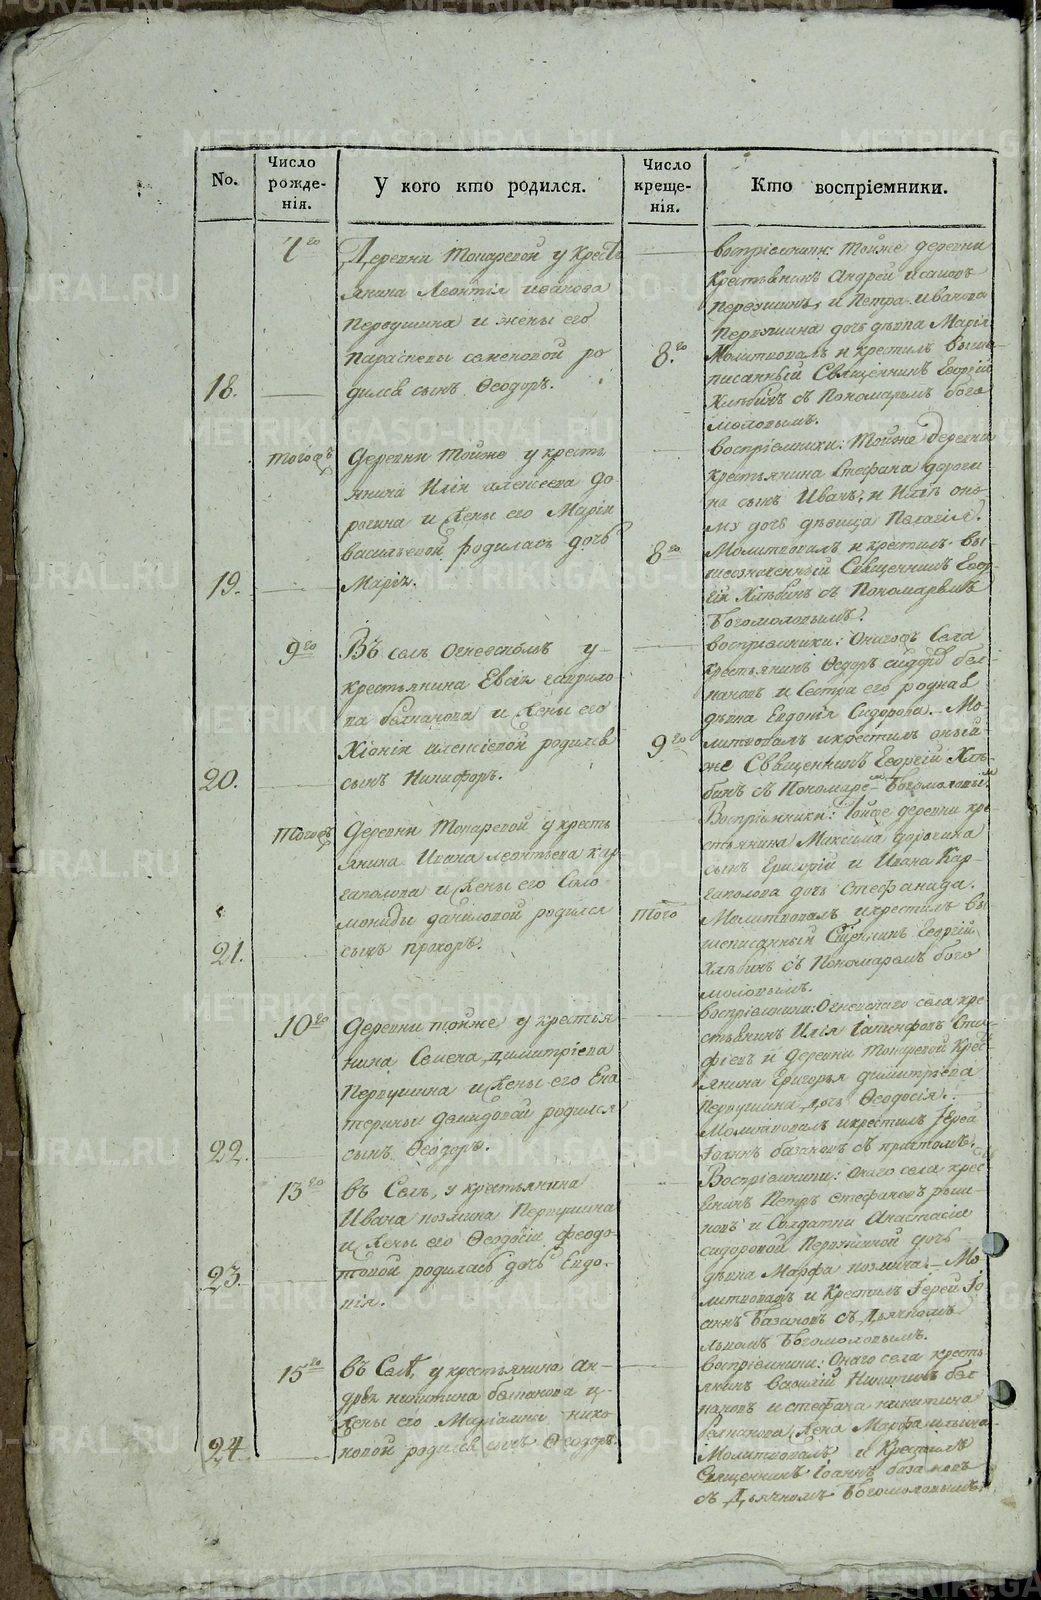 METRIKI.GASO-URAL.RU
No.
Число
рожде-
нія.
У кого кто родился.
Число
креще-
нія.
Кто воспріемники.
18.
Деревни Топаревой у кресть
янина Леонтія иванова
Первушина и жены его
Параскевы семеновой ро
дился сынъ Ѳеодоръ.
8.го
воспріемники: Тойже деревни
крестьянинъ Андрей исаковъ
Первушинъ, и Петра иванова
Первушина дочь дѣвка Марія
Молитвовалъ и крестилъ выше
писанный Священникъ Георгій
Хлѣбинъ съ Пономаремъ бого
моловымъ.
19.
Деревни Тойже у кресть
янина Иліи алексеева до
рогина и жены его Маріи
васильевой родилась дочь
Марія.
8го
воспріемники: Тойже деревни
крестьянина Стефана дороги
на сынъ Иванъ, и
дочь дѣвица Пелагія.
Молитвовалъ и крестилъ вы
шеозначенный Священникъ Геор
гій Хлѣбинъ съ Пономаремъ
Богомоловымъ.
20.
9го
Въ селѣ Огневскомъ у
крестьянина Евсія гаврило
ва балчанова и жены его
Хіоніи алексіевой родился
сынъ Никифоръ.
9го
воспріемники: Онагожъ Села
крестьянинъ Ѳедоръ сидоровъ
и Сестра его родная
дѣвка Евдокія Сидорова. Мо
литвовалъ и крестилъ оный
же Священникъ Георгій Хлѣ-
бинъ съ Пономаремъ Богомоловымъ
21.
Тогожъ
Деревни Топаревой у кресть
янина Ивана леонтьева Кар
гаполова и жены его Соло
мониды даниловой родился
сынъ прохоръ.
того
Воспріемники: Тойже деревни кре
стьянина Максима дорогина
сынъ Григорій и Ивана Кар-
гаполова дочь Стефанида.
Молитвовалъ и крестилъ вы
шеписанный Священникъ Георгій
Хлѣбинъ съ Пономаремъ бого
моловымъ.
22.
10го
Деревни тойже у крестья
нина Семена димитріева
Первушина и жены его Ека
терины демидовой родился
сынъ Ѳеодоръ.
воспріемники: Огневскаго села кре
стьянинъ Илія
и деревни Топаревой Крес
янина Григорья димитріева
Первушина дочь Ѳеодосія.
Молитвовалъ и крестилъ Іерей
Іоаннъ базановъ съ причтомъ.
23.
13го
въ Селѣ, у крестьянина
Ивана козмина Первушина
и жены его Ѳеодосіи феодо-
товой родилась дочь Евдо-
кія.
Воспріемники: онаго села крес
Петръ стефановъ
и Солдатки Анастасіи
сидоровой Первушиной дочь
дѣвка Марфа козмина. Мо
литвовалъ и Крестилъ Іерей Іо
аннъ Базановъ съ Дьячкомъ
Богомоловымъ.
24.
15го
въ Селѣ, у крестьянина Ан-
дрея никитина балчанова и
жены его Маріамны нико
новой родился сынъ Ѳеодоръ
воспріемники: Онаго села кресть
янинъ василій Никитинъ
и стефана никитина
жена Марфа ильина.
Молитвовалъ и Крестилъ
Священникъ Іоаннъ базановъ
съ Дьячкомъ Богомоловымъ.